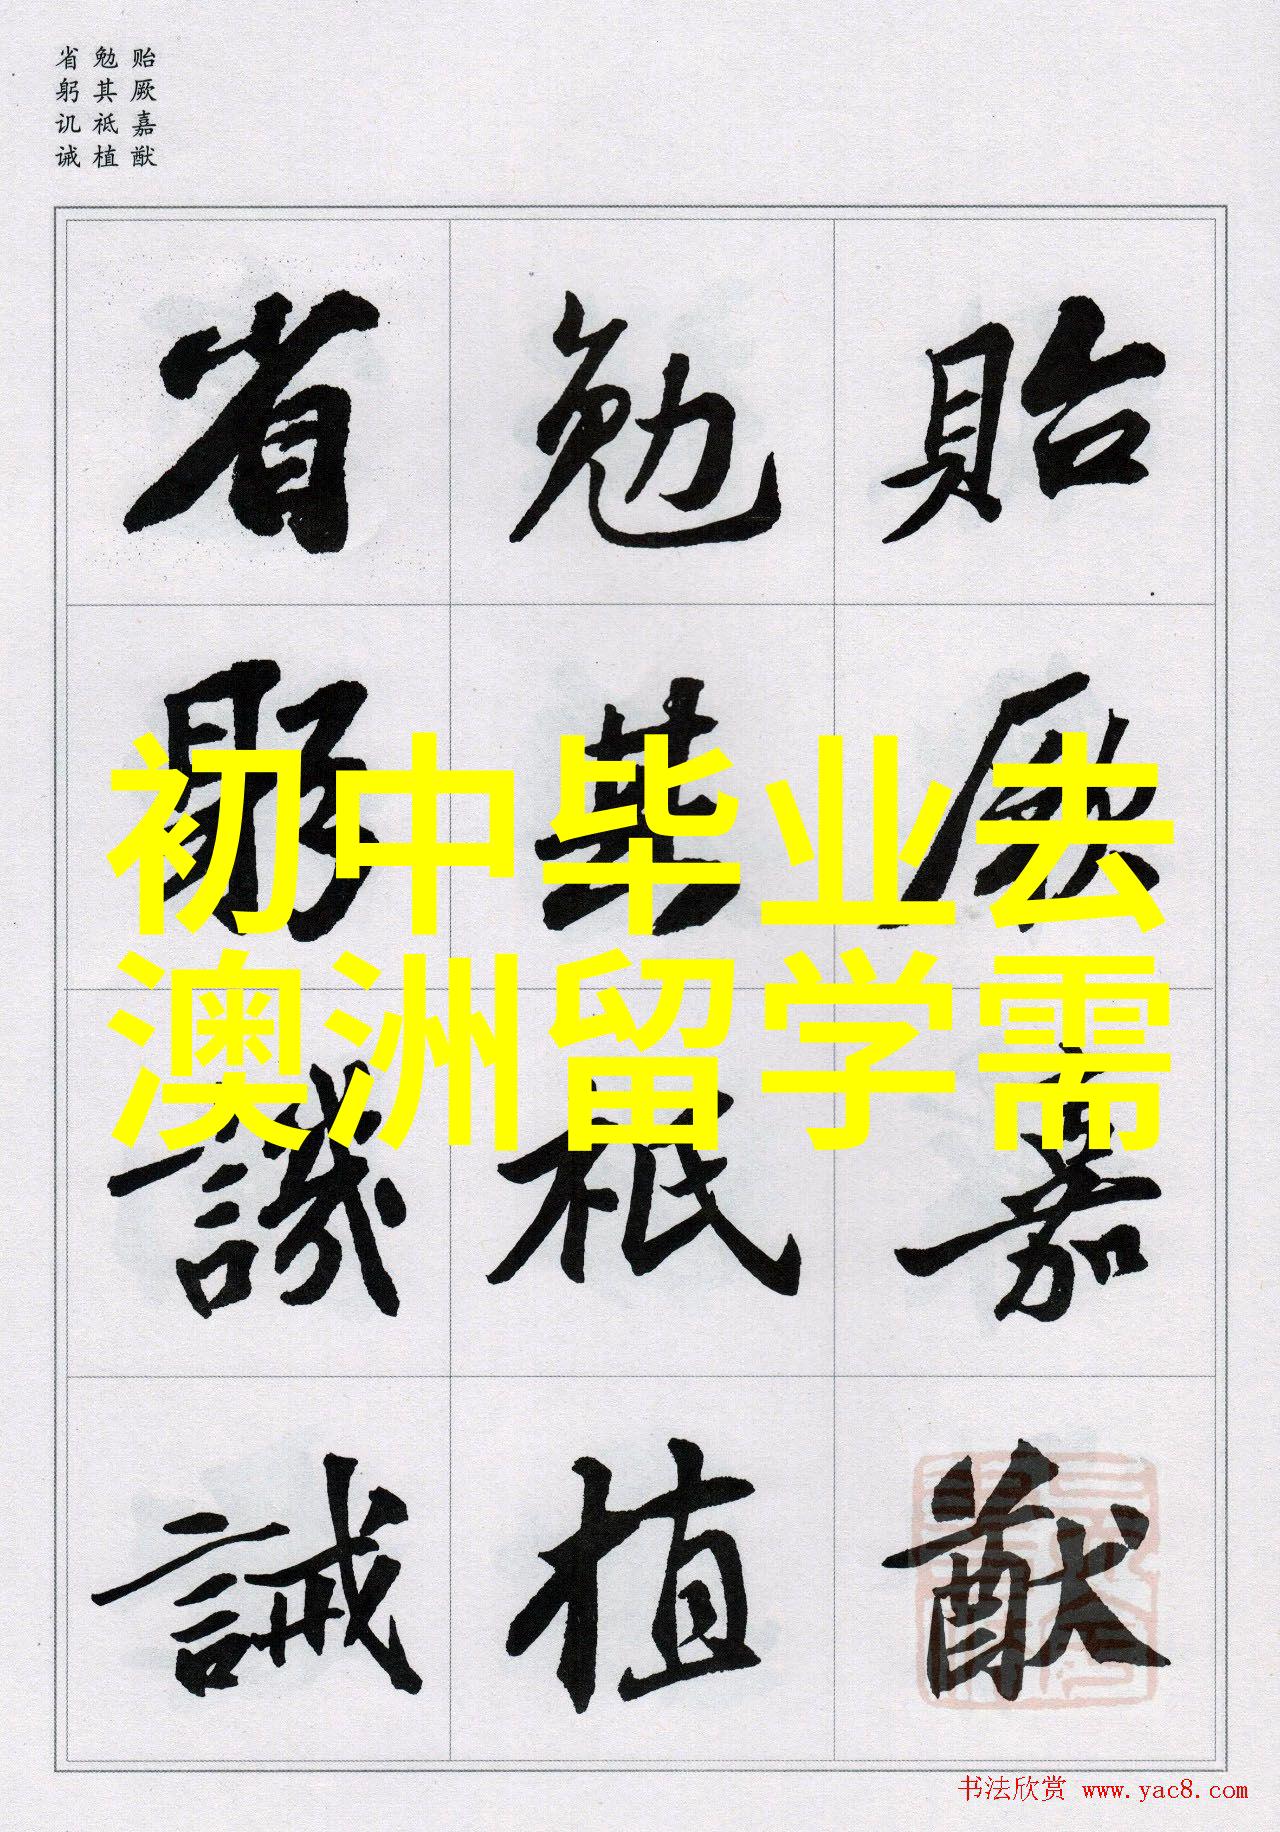 贻厥嘉猷
勉其祗植
省躬讥诫
貽厥嘉猷
勉其祗植
省躬譏誡
初中毕业去
澳洲留学需
书法欣赏 www.yac8.com